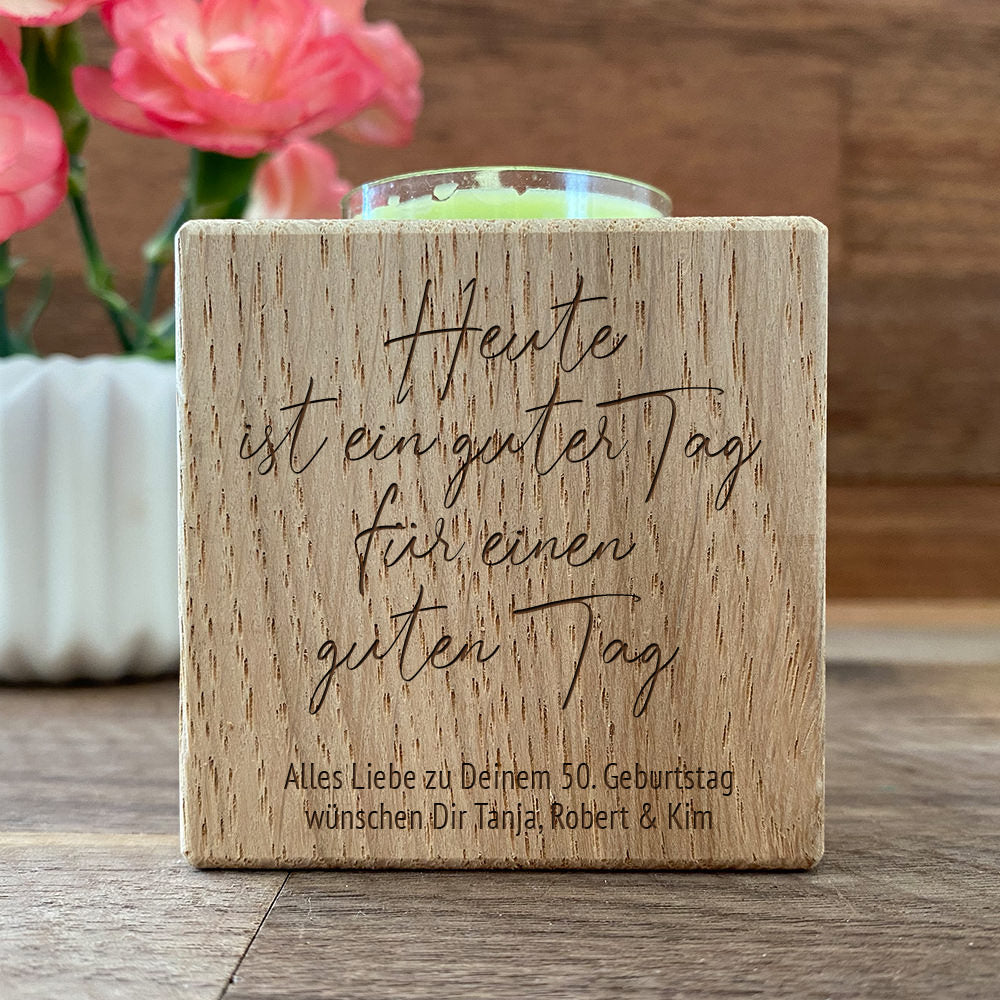 Heute
ist ein guter Tag
für einen
guten Tag
Alles Liebe zu Deinem 50. Geburtstag
wünschen Dir Tanja, Robert & Kim